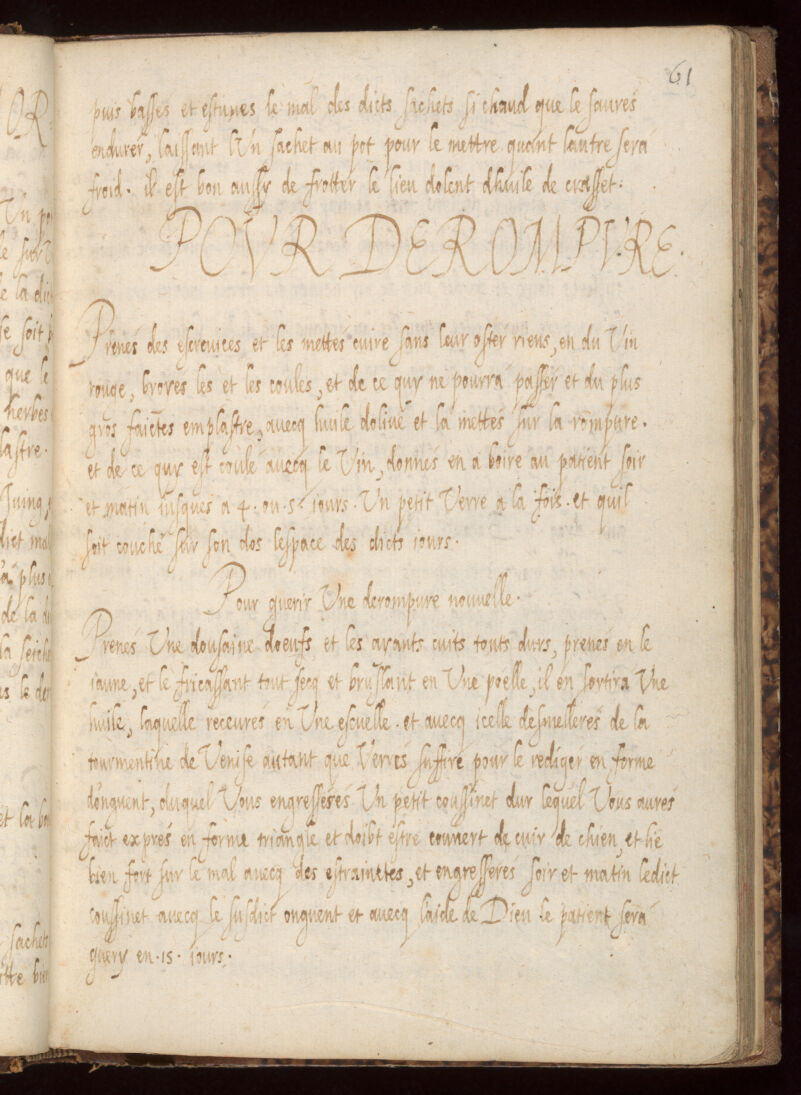 61
puis basses et estuues le mal des dicts sachets si chaud que le saurés
endurer, laissant l'Vn sachet au pot pour le mettre quant lautre sera
froid. il est bon aussy de frotter le lieu dolent dhuile de crasset.
POVR DEROMPVRE.
Prenés des escreuices et les mettés cuire sans leur oster riens, en du Vin
rouge, broyes les et les coules, et de ce quy ne pourra passer et du plus
gros faictes emplastre, auecq huile doliue et la mettés sur la rompure.
et de ce quy est coulé auecq le Vin, donnés en a boire au patient soir
et matin iusques a 4. ou .5. iours. Vn petit Verre a la fois. et quil
soit couché sur son dos lespace des dicts iours.
Pour guerir Vne derompure nouuelle.
Prenés Vne dousaine doeufs et les ayants cuits touts durs, prenés en le
iaune, et le fricassant tout secq et bruslant en Vne poelle, il en sortira Vne
huile, laquelle receurés en Vne escuelle. et auecq icelle desmelleres de la
tourmentine de Venise autant que Verrés suffire pour le rediger en forme
d'onguent, duquel Vous engresserés Vn petit coussinet dur lequel Vous aurés
faict exprés en forme triangle et doibt estre couuert de cuir de chien, et lié
bien fort sur le mal auecq des estrainttes, et engresserés soir et matin ledict
coussinet auecq le susdict onguent et auecq laide de Dieu le patient sera
guery en .15. iours.